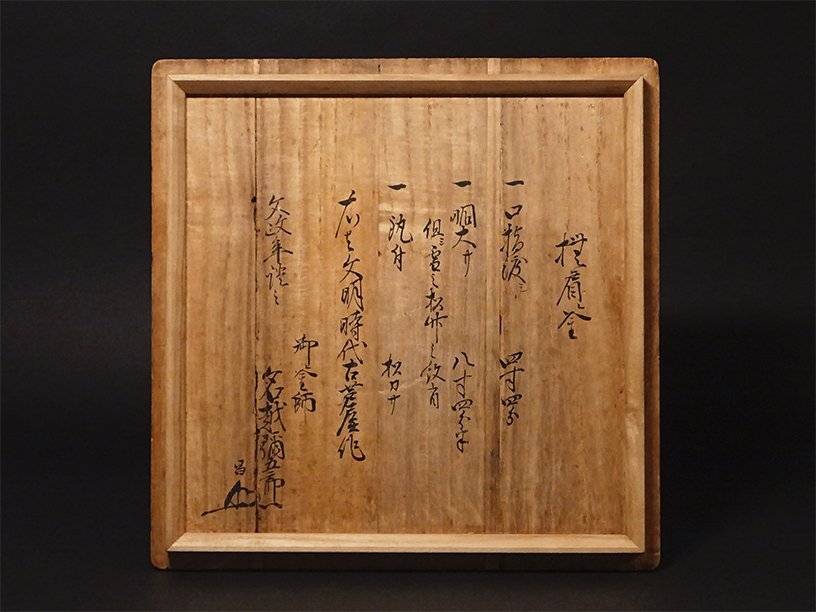 撫肩釜
一 口指渡シ 四寸四分
一 胴大サ 八寸四分半
但霰ニ松竹之紋有
一 鐶付 松カサ
右者文明時代古芦屋作
文政年
御釜師
名越彌五郎
昌